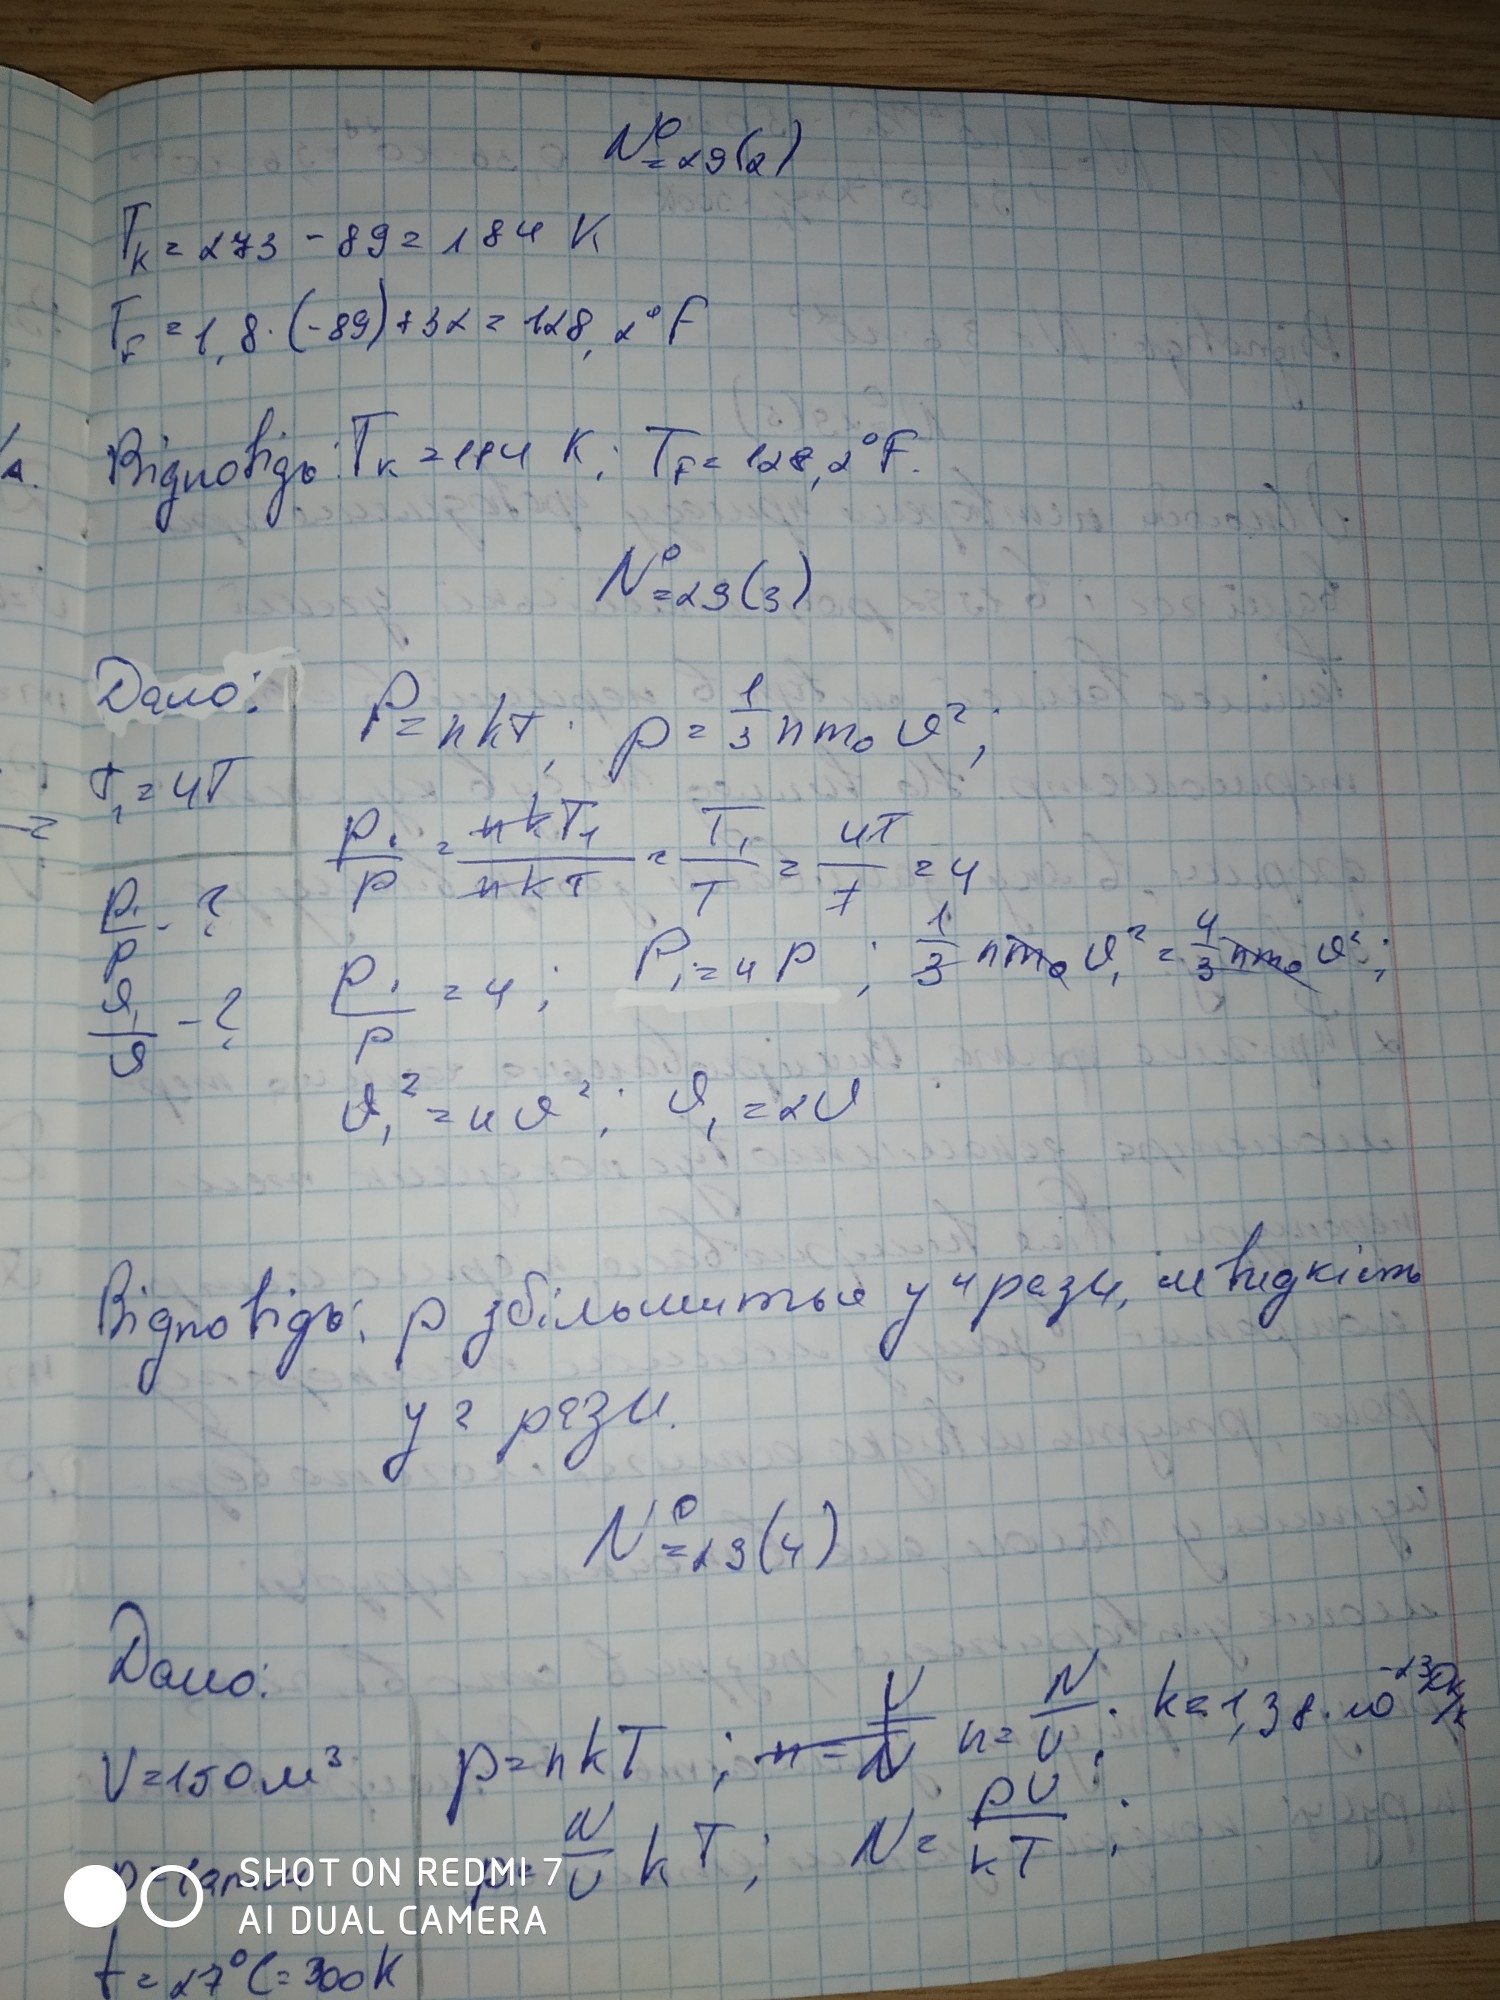 № 29(2)
Tк = 273 - 89 = 184 K
TF = 1,8 · (-89) + 32 = 128,2°F
Відповідь: Tк = 184 K; TF = 128,2°F.
№ 29(3)
Дано:
P = nkT; p = 1/3 nm₀ υ²;
T₁ = 4T
p₁/p = nkT₁/nkT = T₁/T = 4T/T = 4
p₁/p - ?
p₁/p = 4; P₁ = 4p; 1/3 nm₀ υ₁² = 4/3 nm₀ υ²;
υ₁/υ - ?
υ₁² = 4υ²; υ₁ = 2υ
Відповідь: p збільшиться у 4 рази, швидкість
у 2 рази.
№ 29(4)
Дано:
V = 150 м³
p = nkT; n = V/N n = N/V; k = 1,38 · 10⁻²³ Дж/К
p = N/V kT; N = pV/kT;
t = 27°C = 300K
SHOT ON REDMI 7
AI DUAL CAMERA